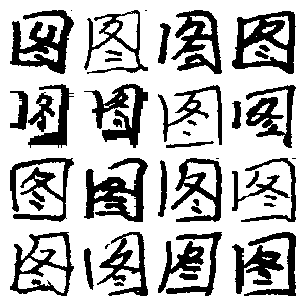 图图图图
图图图图
图图图图
图图图图